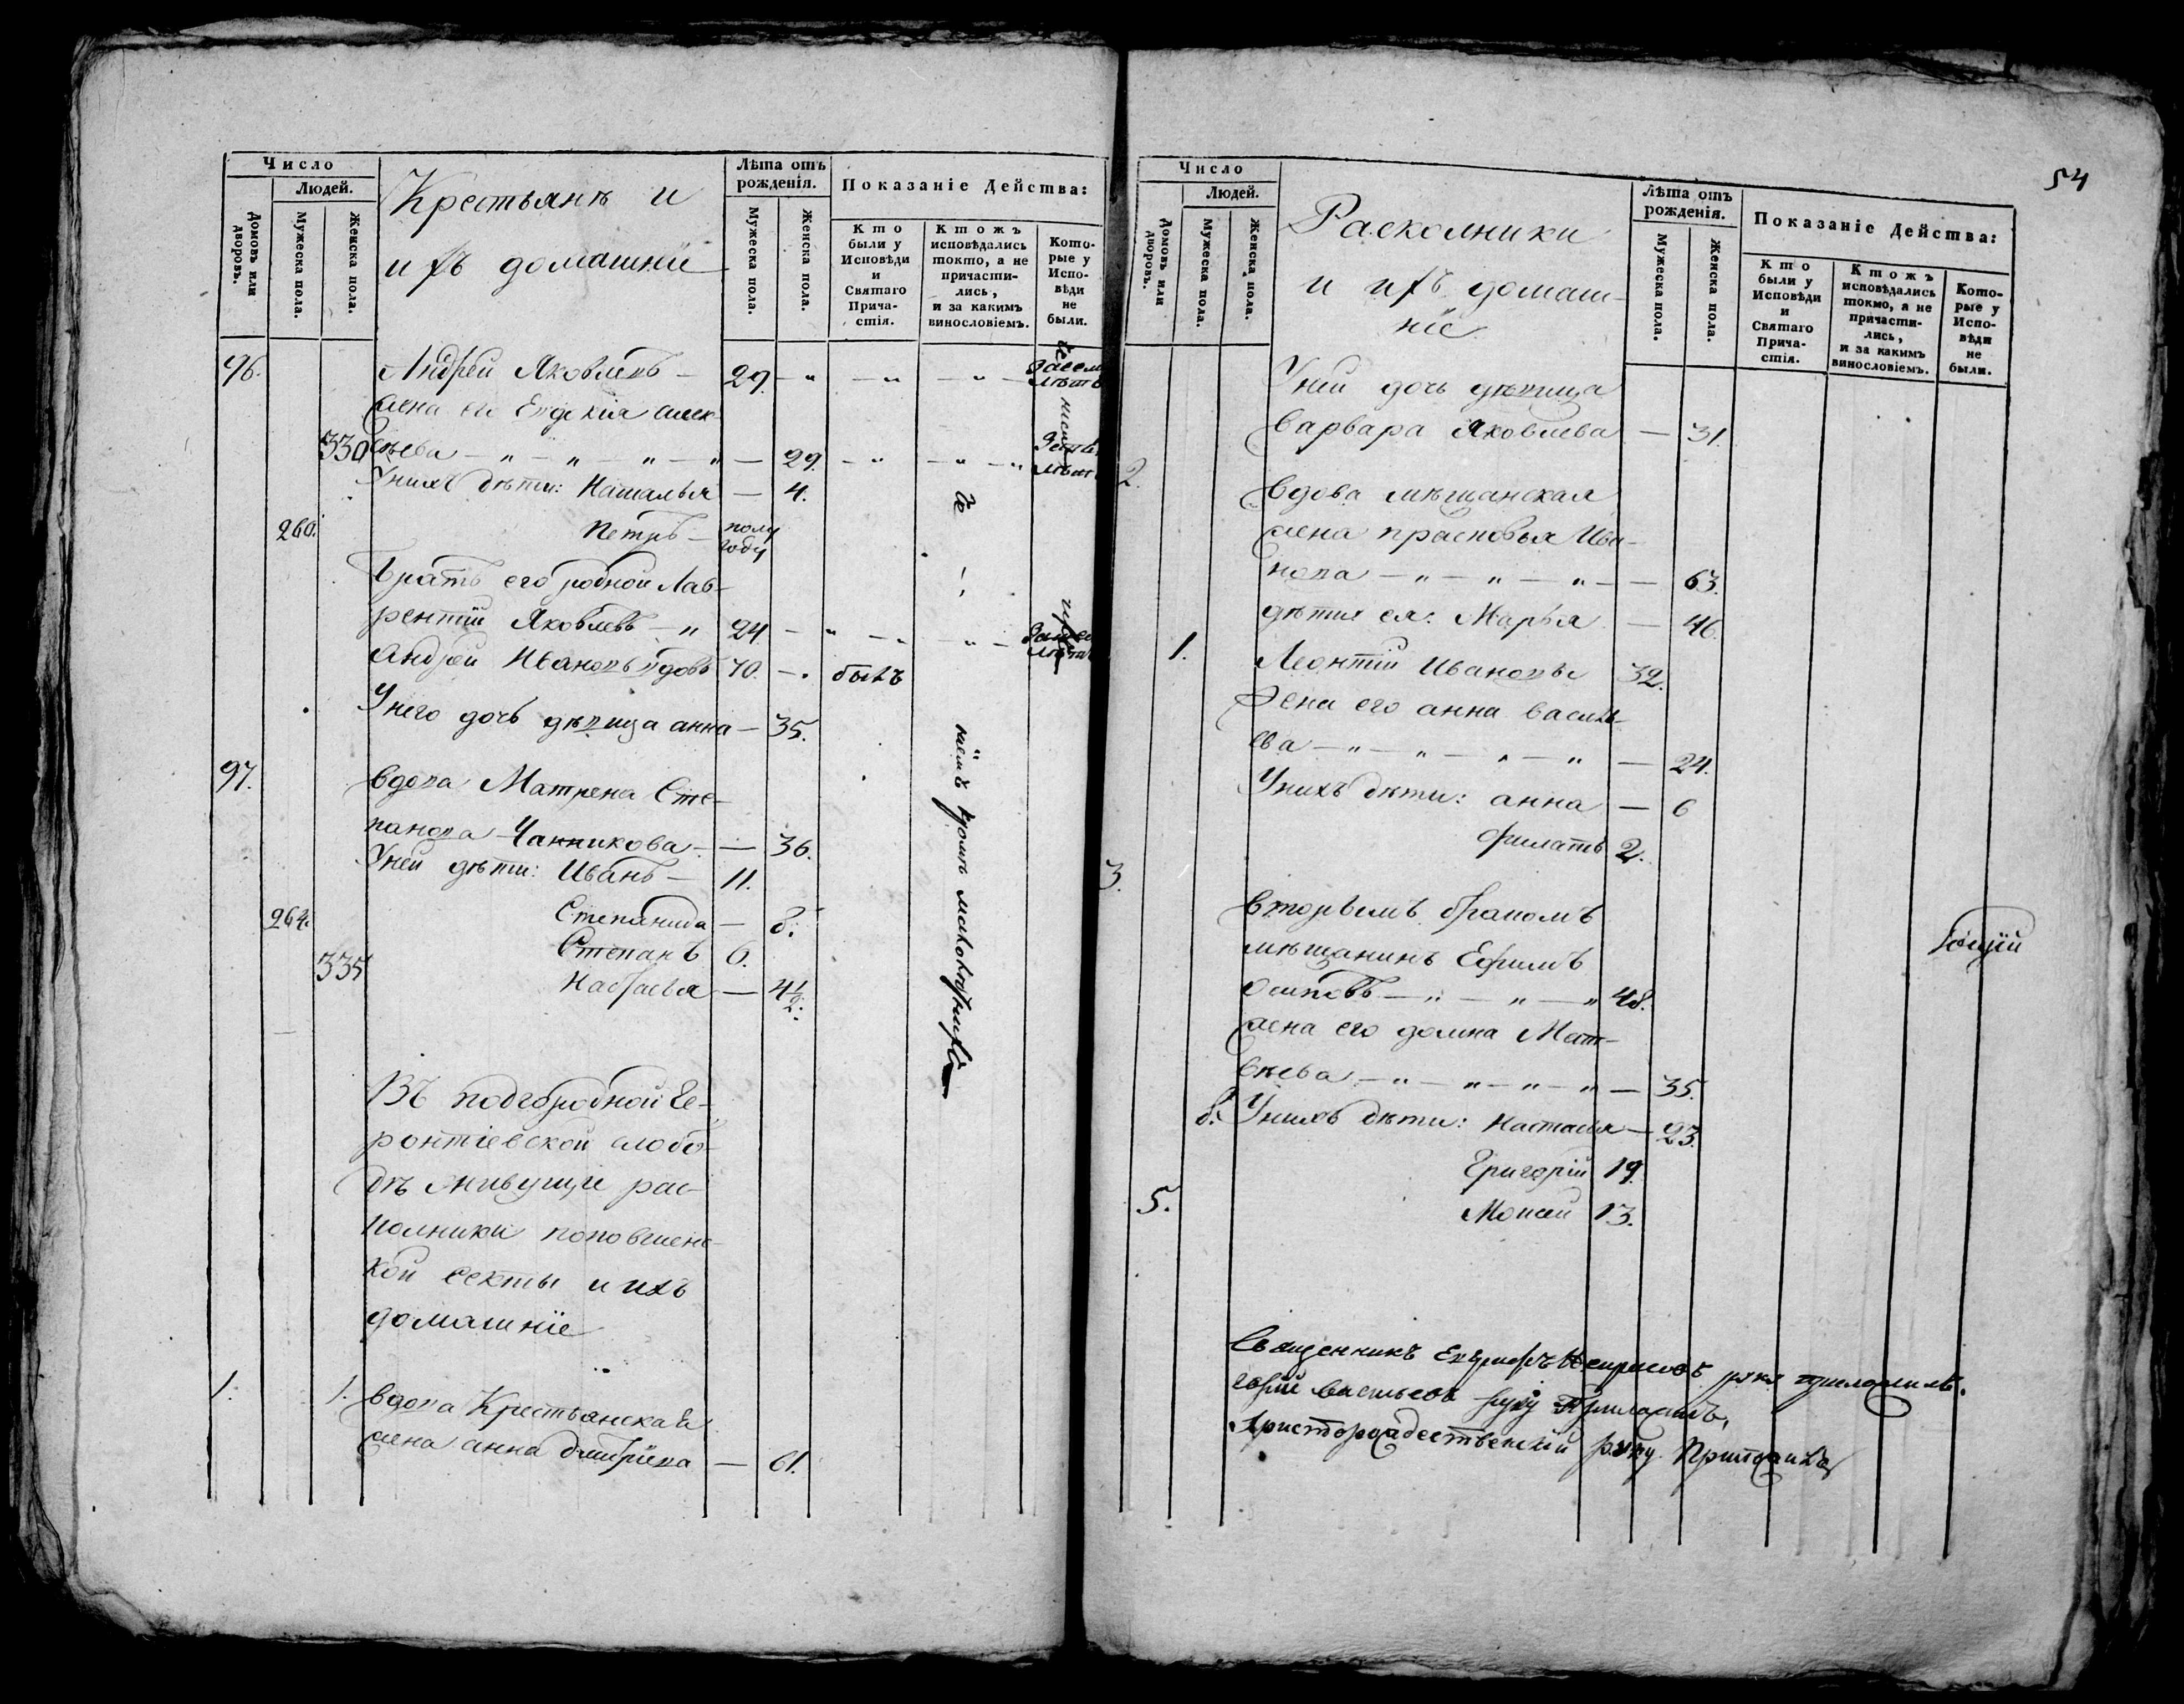 Число
Людей.
Домовъ или дворовъ.
Мужеска пола.
Женска пола.
Крестьянъ и
ихъ домашнїе
Лѣта отъ рожденія.
Мужеска пола.
Женска пола.
Показаніе Дѣйства:
Кто были у Исповѣди и Святаго Причастія.
Ктожъ исповѣдались токто, а не причастились, и за какимъ винословіемъ.
Которые у Исповѣди не были.
96. Андрей Яковлевъ — 29. — „ — „ — „ —
жена его Евдокія Алек-
330 сѣева — „ — „ — „ — „ — 29. — „ — „ — „
Унихъ дѣти: Наталья — 4.
260. Петръ — полу году
Братъ его родной Лав-
рентій Яковлевъ — „ 24. — „ — „ — „ —
Андрей Ивановъ вдовъ 70. — . былъ
Унего дочь дѣвица анна — 35.
97. вдова Матрена Сте-
панова Чанникова — — 36.
Уней дѣти: Иванъ — 11.
264. Степанида — 8.
Степанъ 6.
335 Настасья — 4½.
Въ подгородной Ге-
ронтіевской слобо-
дѣ живущіе рас-
колники поповщинс-
кой секты и ихъ
домашніе
1. 1. вдова Крестьянская
жена анна дмитріева — 61.
54
Число
Людей.
Домовъ или дворовъ.
Мужеска пола.
Женска пола.
Расколники
и ихъ домаш-
ніе
Лѣта отъ рожденія.
Мужеска пола.
Женска пола.
Показаніе Дѣйства:
Кто были у Исповѣди и Святаго Причастія.
Ктожъ исповѣдались токмо, а не причастились, и за какимъ винословіемъ.
Которые у Исповѣди не были.
Уней дочь дѣвица
варвара Яковлева — 31.
2. вдова мѣщанская
жена прасковья Ива-
нова — „ — „ — „ — — 63.
дѣти ея: Марья — 46.
1. Леонтій Ивановъ 32.
Жена его анна василь-
ева — „ — „ — „ — „ — 24.
Унихъ дѣти: анна — 6
филатъ 2.
3. вторымъ бракомъ
мѣщанинъ Ефимъ
Осиповъ — „ — „ — „ 48.
жена его домна Мат-
вѣева — „ — „ — „ — „ — 35.
8. Унихъ дѣти: Настасья — 23.
Григорій 19.
5. Моисей 13.
Священникъ руку приложилъ.
Васильевъ руку Приложилъ,
Христорождественскій руку Приложилъ